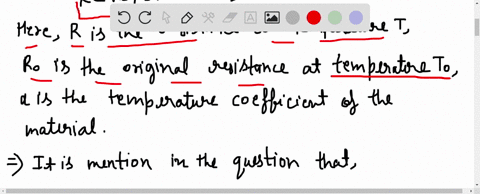 Here, R is the
R₀ is the original resistance at temperature T₀,
α is the temperature coefficient of the
material.
⇒ It is mention in the question that,